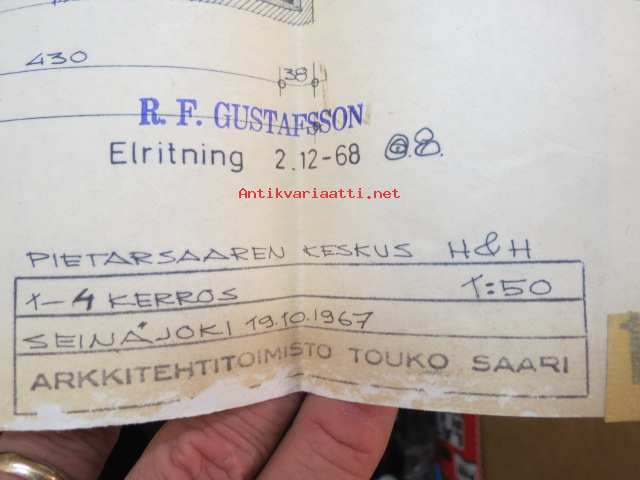 430
38
R. F. GUSTAFSSON
Elritning 2.12-68
Antikvariaatti.net
PIETARSAAREN KESKUS H&H
1-4 KERROS 1:50
SEINÄJOKI 19.10.1967
ARKKITEHTITOIMISTO TOUKO SAARI